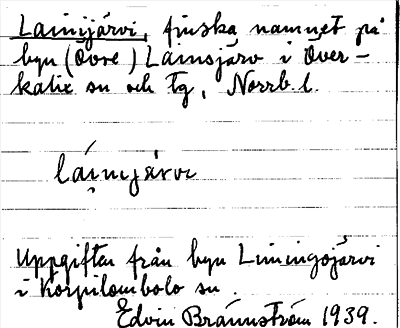 Lainijärvi, finska namnet på
byn (Övre) Lainsjärv i Över-
kalix sn och tg, Norrb. l.
láinijärvi
Uppgifter från byn Liviningojärvi
i Korpilombolo sn.
Edvin Brännström 1939.